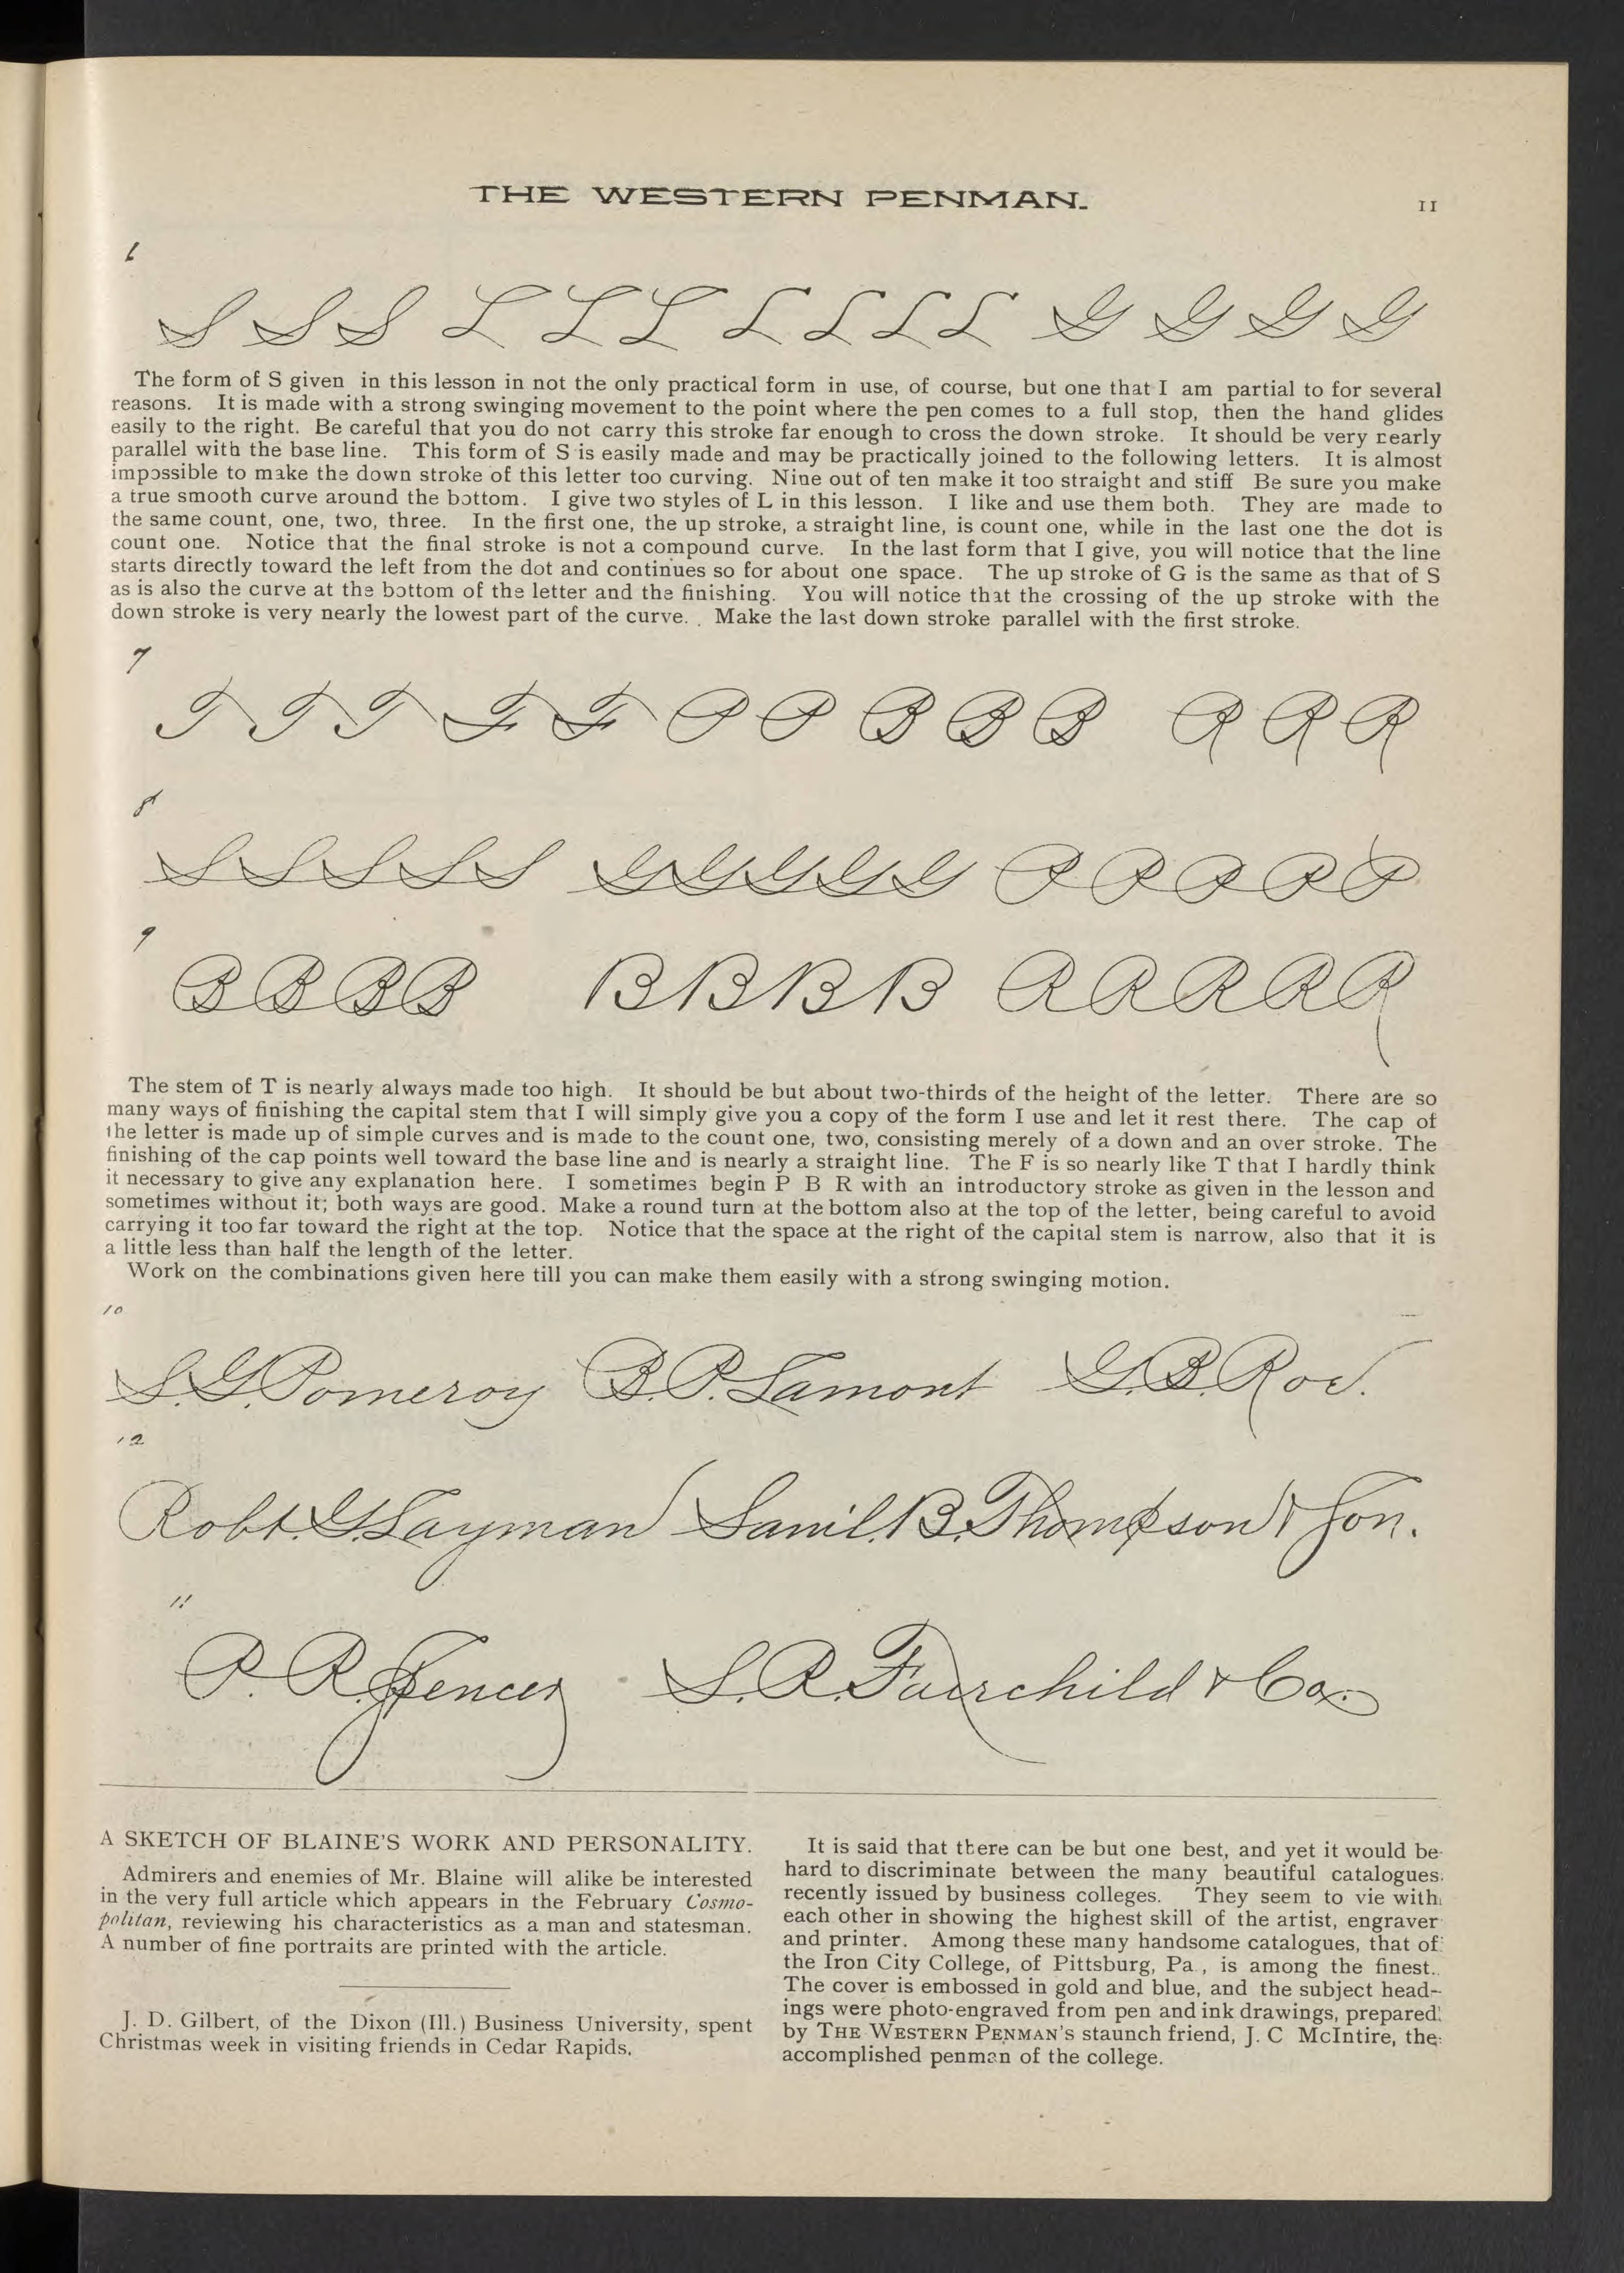 THE WESTERN PENMAN.
11
6
S S S L L L L L L L G G G G
The form of S given in this lesson in not the only practical form in use, of course, but one that I am partial to for several
reasons. It is made with a strong swinging movement to the point where the pen comes to a full stop, then the hand glides
easily to the right. Be careful that you do not carry this stroke far enough to cross the down stroke. It should be very nearly
parallel with the base line. This form of S is easily made and may be practically joined to the following letters. It is almost
impossible to make the down stroke of this letter too curving. Nine out of ten make it too straight and stiff Be sure you make
a true smooth curve around the bottom. I give two styles of L in this lesson. I like and use them both. They are made to
the same count, one, two, three. In the first one, the up stroke, a straight line, is count one, while in the last one the dot is
count one. Notice that the final stroke is not a compound curve. In the last form that I give, you will notice that the line
starts directly toward the left from the dot and continues so for about one space. The up stroke of G is the same as that of S
as is also the curve at the bottom of the letter and the finishing. You will notice that the crossing of the up stroke with the
down stroke is very nearly the lowest part of the curve. Make the last down stroke parallel with the first stroke.
7
T T T F F P P B B B R R R
8
S S S S S G G G G G P P P P P
9
B B B B B B B B R R R R R
The stem of T is nearly always made too high. It should be but about two-thirds of the height of the letter. There are so
many ways of finishing the capital stem that I will simply give you a copy of the form I use and let it rest there. The cap of
the letter is made up of simple curves and is made to the count one, two, consisting merely of a down and an over stroke. The
finishing of the cap points well toward the base line and is nearly a straight line. The F is so nearly like T that I hardly think
it necessary to give any explanation here. I sometimes begin P B R with an introductory stroke as given in the lesson and
sometimes without it; both ways are good. Make a round turn at the bottom also at the top of the letter, being careful to avoid
carrying it too far toward the right at the top. Notice that the space at the right of the capital stem is narrow, also that it is
a little less than half the length of the letter.
Work on the combinations given here till you can make them easily with a strong swinging motion.
10
S. G. Pomeroy B. P. Lamont G. B. Roe.
12
Robt. G. Layman Saml. B. Thompson & Son.
11
P. R. Spencer S. R. Fairchild & Co.
A SKETCH OF BLAINE'S WORK AND PERSONALITY.
Admirers and enemies of Mr. Blaine will alike be interested
in the very full article which appears in the February Cosmo-
politan, reviewing his characteristics as a man and statesman.
A number of fine portraits are printed with the article.
J. D. Gilbert, of the Dixon (Ill.) Business University, spent
Christmas week in visiting friends in Cedar Rapids.
It is said that there can be but one best, and yet it would be
hard to discriminate between the many beautiful catalogues
recently issued by business colleges. They seem to vie with
each other in showing the highest skill of the artist, engraver
and printer. Among these many handsome catalogues, that of
the Iron City College, of Pittsburg, Pa., is among the finest.
The cover is embossed in gold and blue, and the subject head-
ings were photo-engraved from pen and ink drawings, prepared
by THE WESTERN PENMAN's staunch friend, J. C McIntire, the
accomplished penman of the college.